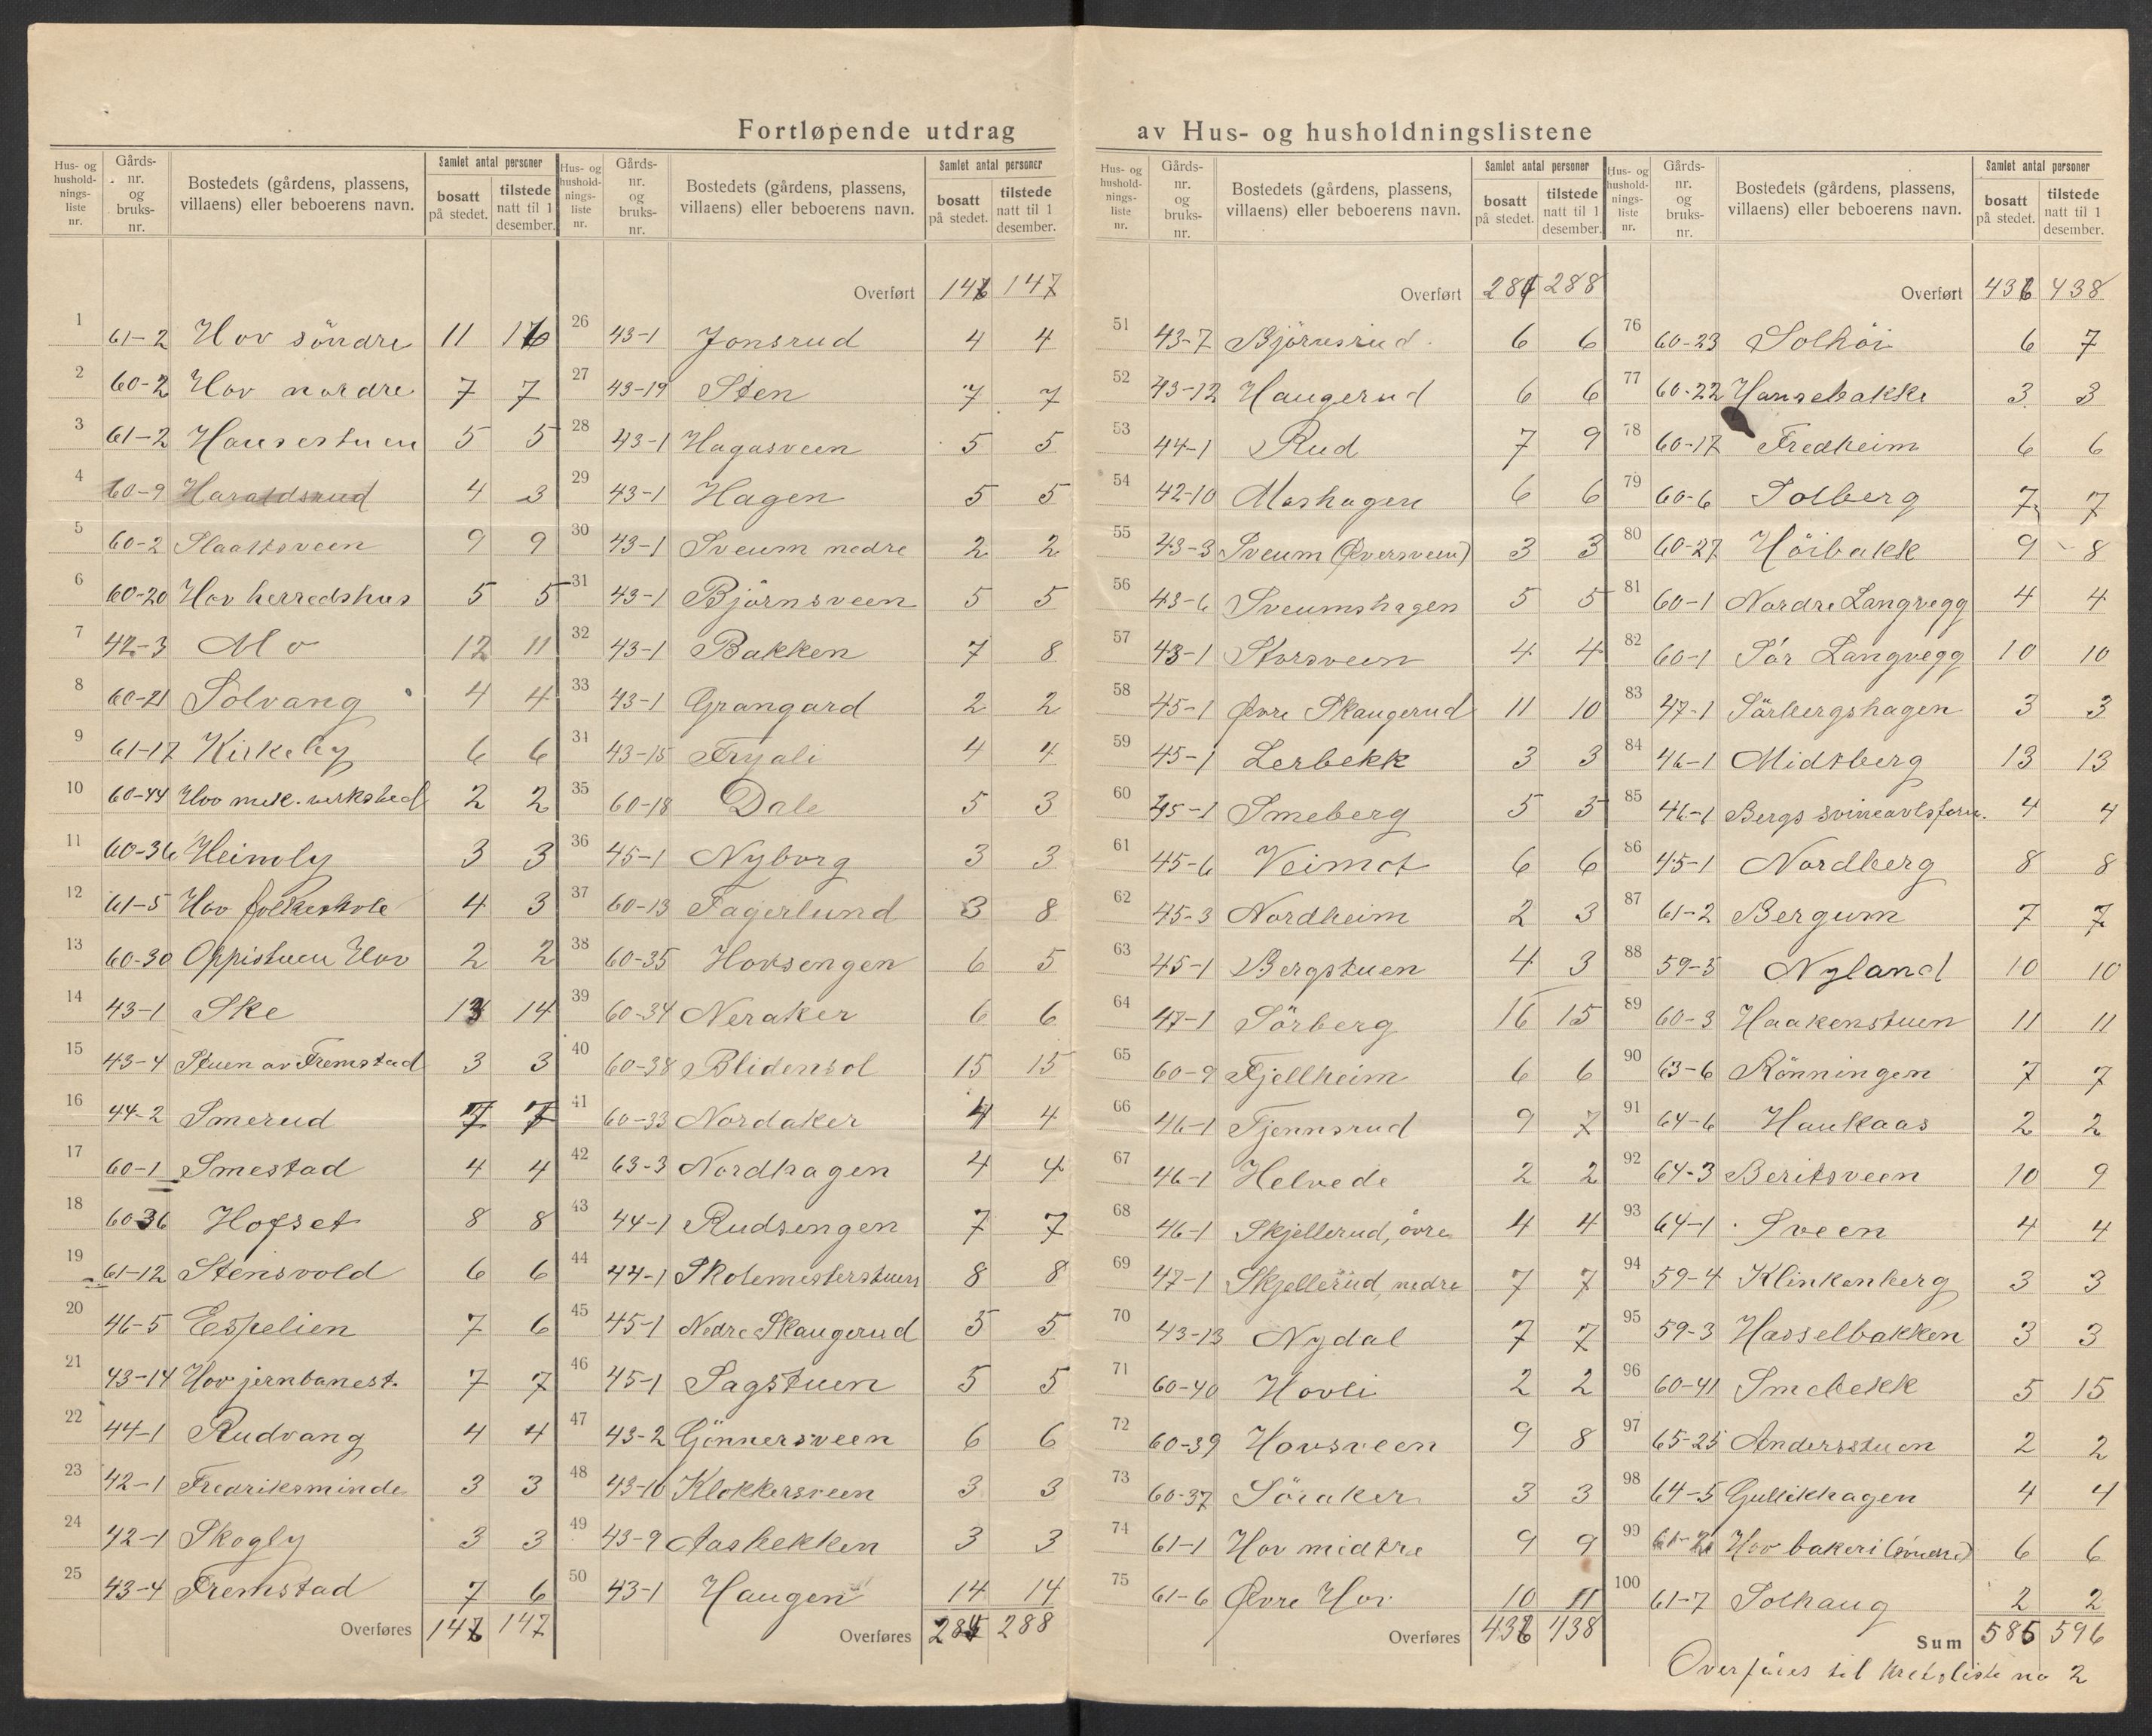 Fortløpende utdrag av Hus- og husholdningslistene
Hus- og husholdnings-liste nr. | Gårds-nr. og bruks-nr. | Bostedets (gårdens, plassens, villaens) eller beboerens navn. | Samlet antal personer | bosatt på stedet. | tilstede natt til 1 desember.
1 61-2 Hov söndre 11 16
2 60-2 Hov nordre 7 7
3 61-2 Hansestuen 5 5
4 60-9 Haraldsrud 4 3
5 60-2 Slaattsveen 9 9
6 60-20 Hov herredshus 5 5
7 42-3 Mo 12 11
8 60-21 Solvang 4 4
9 61-17 Kirkeby 6 6
10 60-44 Hov mek. verksted 2 2
11 60-36 Heimly 3 3
12 61-5 Hov folkeskole 4 3
13 60-30 Oppistuen Hov 2 2
14 43-1 Ske 13 14
15 43-4 Stuen av Fremstad 3 3
16 44-2 Smerud 7 7
17 60-1 Smestad 4 4
18 60 36 Hofset 8 8
19 61-12 Stensvold 6 6
20 46-5 Espelien 7 6
21 43-14 Hov jernbanest. 7 7
22 44-1 Rudvang 4 4
23 42-1 Fredriksminde 3 3
24 42-1 Skogly 3 3
25 43-4 Fremstad 7 6
Overføres 146 147
Hus- og husholdnings-liste nr. | Gårds-nr. og bruks-nr. | Bostedets (gårdens, plassens, villaens) eller beboerens navn. | Samlet antal personer | bosatt på stedet. | tilstede natt til 1 desember.
Overført 146 147
26 43-1 Jonsrud 4 4
27 43-19 Sten 7 7
28 43-1 Hagasveen 5 5
29 43-1 Hagen 5 5
30 43-1 Sveum nedre 2 2
31 43-1 Björnsveen 5 5
32 43-1 Bakken 7 8
33 43-1 Grangard 2 2
34 43-15 Fryali 4 4
35 60-18 Dale 5 3
36 45-1 Nyborg 3 3
37 60-13 Fagerlund 3 8
38 60-35 Hovsengen 6 5
39 60-34 Neraker 6 6
40 60-38 Blidensol 15 15
41 60-33 Nordaker 4 4
42 63-3 Nordhagen 4 4
43 44-1 Rudsengen 7 7
44 44-1 Skolemesterstuen 8 8
45 45-1 Nedre Skaugerud 5 5
46 45-1 Sagstuen 5 5
47 43-2 Gjönnersveen 6 6
48 43-10 Klokkersveen 3 3
49 43-9 Aasbekken 3 3
50 43-1 Haugen 14 14
Overføres 284 288
Hus- og husholdnings-liste nr. | Gårds-nr. og bruks-nr. | Bostedets (gårdens, plassens, villaens) eller beboerens navn. | Samlet antal personer | bosatt på stedet. | tilstede natt til 1 desember.
Overført 284 288
51 43-7 Björnsrud 6 6
52 43-12 Haugerud 6 6
53 44-1 Rud 7 9
54 42-10 Moshagen 6 6
55 43-3 Sveum (Øversveen) 3 3
56 43-6 Sveumshagen 5 5
57 43-1 Storsveen 4 4
58 45-1 Øvre Skaugerud 11 10
59 45-1 Lerbekk 3 3
60 45-1 Smeberg 5 5
61 45-6 Veimot 6 6
62 45-3 Nordheim 2 3
63 45-1 Bergstuen 4 3
64 47-1 Sörberg 16 15
65 60-9 Fjellheim 6 6
66 46-1 Tjennsrud 9 7
67 46-1 Helvede 2 2
68 46-1 Skjellerud, övre 4 4
69 47-1 Skjellerud, nedre 7 7
70 43-13 Nydal 7 7
71 60-40 Hovli 2 2
72 60-39 Hovsveen 9 8
73 60-37 Söraker 3 3
74 61-1 Hov midtre 9 9
75 61-6 Øvre Hov 10 11
Overføres 436 438
Hus- og husholdnings-liste nr. | Gårds-nr. og bruks-nr. | Bostedets (gårdens, plassens, villaens) eller beboerens navn. | Samlet antal personer | bosatt på stedet. | tilstede natt til 1 desember.
Overført 436 438
76 60-23 Solhöi 6 7
77 60-22 Hansebakke 3 3
78 60-17 Fredheim 6 6
79 60-6 Solberg 7 7
80 60-27 Höibakk 9 8
81 60-1 Nordre Langvegg 4 4
82 60-1 Sör Langvegg 10 10
83 47-1 Sörbergshagen 3 3
84 46-1 Midtberg 13 13
85 46-1 Bergs svineavlsforn. 4 4
86 45-1 Nordberg 8 8
87 61-2 Bergum 7 7
88 59-5 Nyland 10 10
89 60-3 Haakenstuen 11 11
90 63-6 Rönningen 7 7
91 64-6 Haukaas 2 2
92 64-3 Beritsveen 10 9
93 64-1 Sveen 4 4
94 59-4 Klinkenberg 3 3
95 59-3 Hasselbakken 3 3
96 60-41 Smebekk 5 15
97 65-25 Andersstuen 2 2
98 64-5 Gullikhagen 4 4
99 61-2 Hov bakeri (söndre) 6 6
100 61-7 Solhaug 2 2
Sum 585 596
Overföres til kretsliste no 2